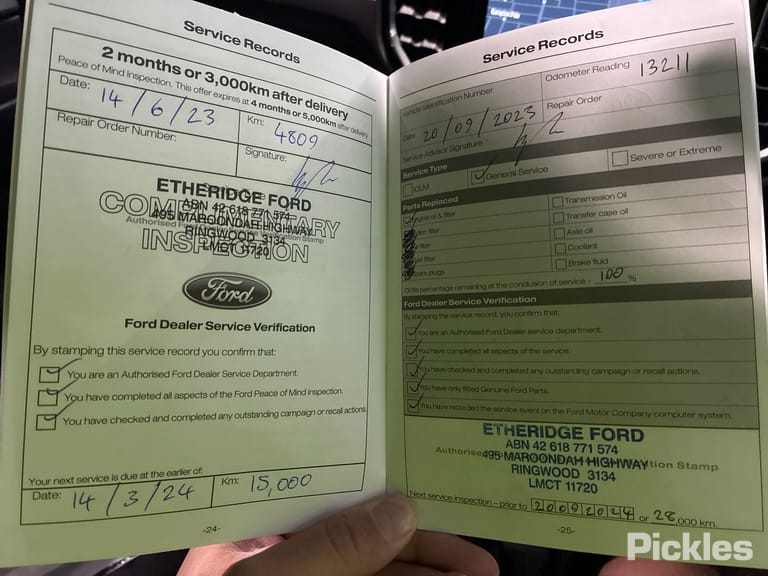 Service Records
2 months or 3,000km after delivery
Peace of Mind Inspection. This offer expires at 4 months or 5,000km after delivery
Date: 14/6/23
Km: 4809
Repair Order Number:
Signature:
COMPLIMENTARY
INSPECTION
ETHERIDGE FORD
ABN 42 618 771 574
495 MAROONDAH HIGHWAY
RINGWOOD 3134
LMCT 11720
Ford
Ford Dealer Service Verification
By stamping this service record you confirm that:
You are an Authorised Ford Dealer Service Department.
You have completed all aspects of the Ford Peace of Mind Inspection.
You have checked and completed any outstanding campaign or recall actions.
Your next service is due at the earlier of:
Date: 14/3/24
Km: 15,000
-24-
Service Records
Vehicle Identification Number
Odometer Reading 13211
Date 20/09/2023
Repair Order
Service Advisor Signature
Service Type
OLM
General Service
Severe or Extreme
Parts Replaced
Engine oil & filter
Transmission Oil
filter
Transfer case oil
filter
Axle oil
filter
Coolant
plugs
Brake fluid
Oil life percentage remaining at the conclusion of service - 100 %
Ford Dealer Service Verification
By stamping the service record, you confirm that:
You are an Authorised Ford Dealer service department.
You have completed all aspects of the service.
You have checked and completed any outstanding campaign or recall actions.
You have only fitted Genuine Ford Parts.
You have recorded the service event on the Ford Motor Company computer system.
ETHERIDGE FORD
ABN 42 618 771 574
495 MAROONDAH HIGHWAY
RINGWOOD 3134
LMCT 11720
Next service inspection - prior to 20092024 or 28,000 km.
-25-
Pickles